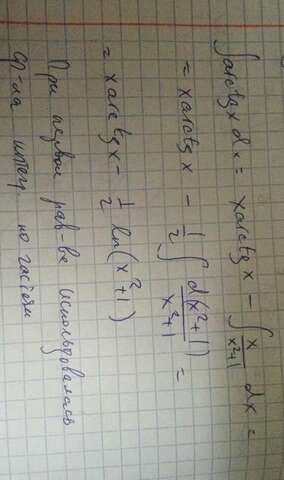 ∫arctgx dx = xarctg x - ∫ x/(x²+1) dx =
= xarctgx - 1/2 ∫ d(x²+1)/(x²+1) =
= xarctgx - 1/2 ln(x²+1)
При первом рав-ве использовалась
ф-ла интегр по частям